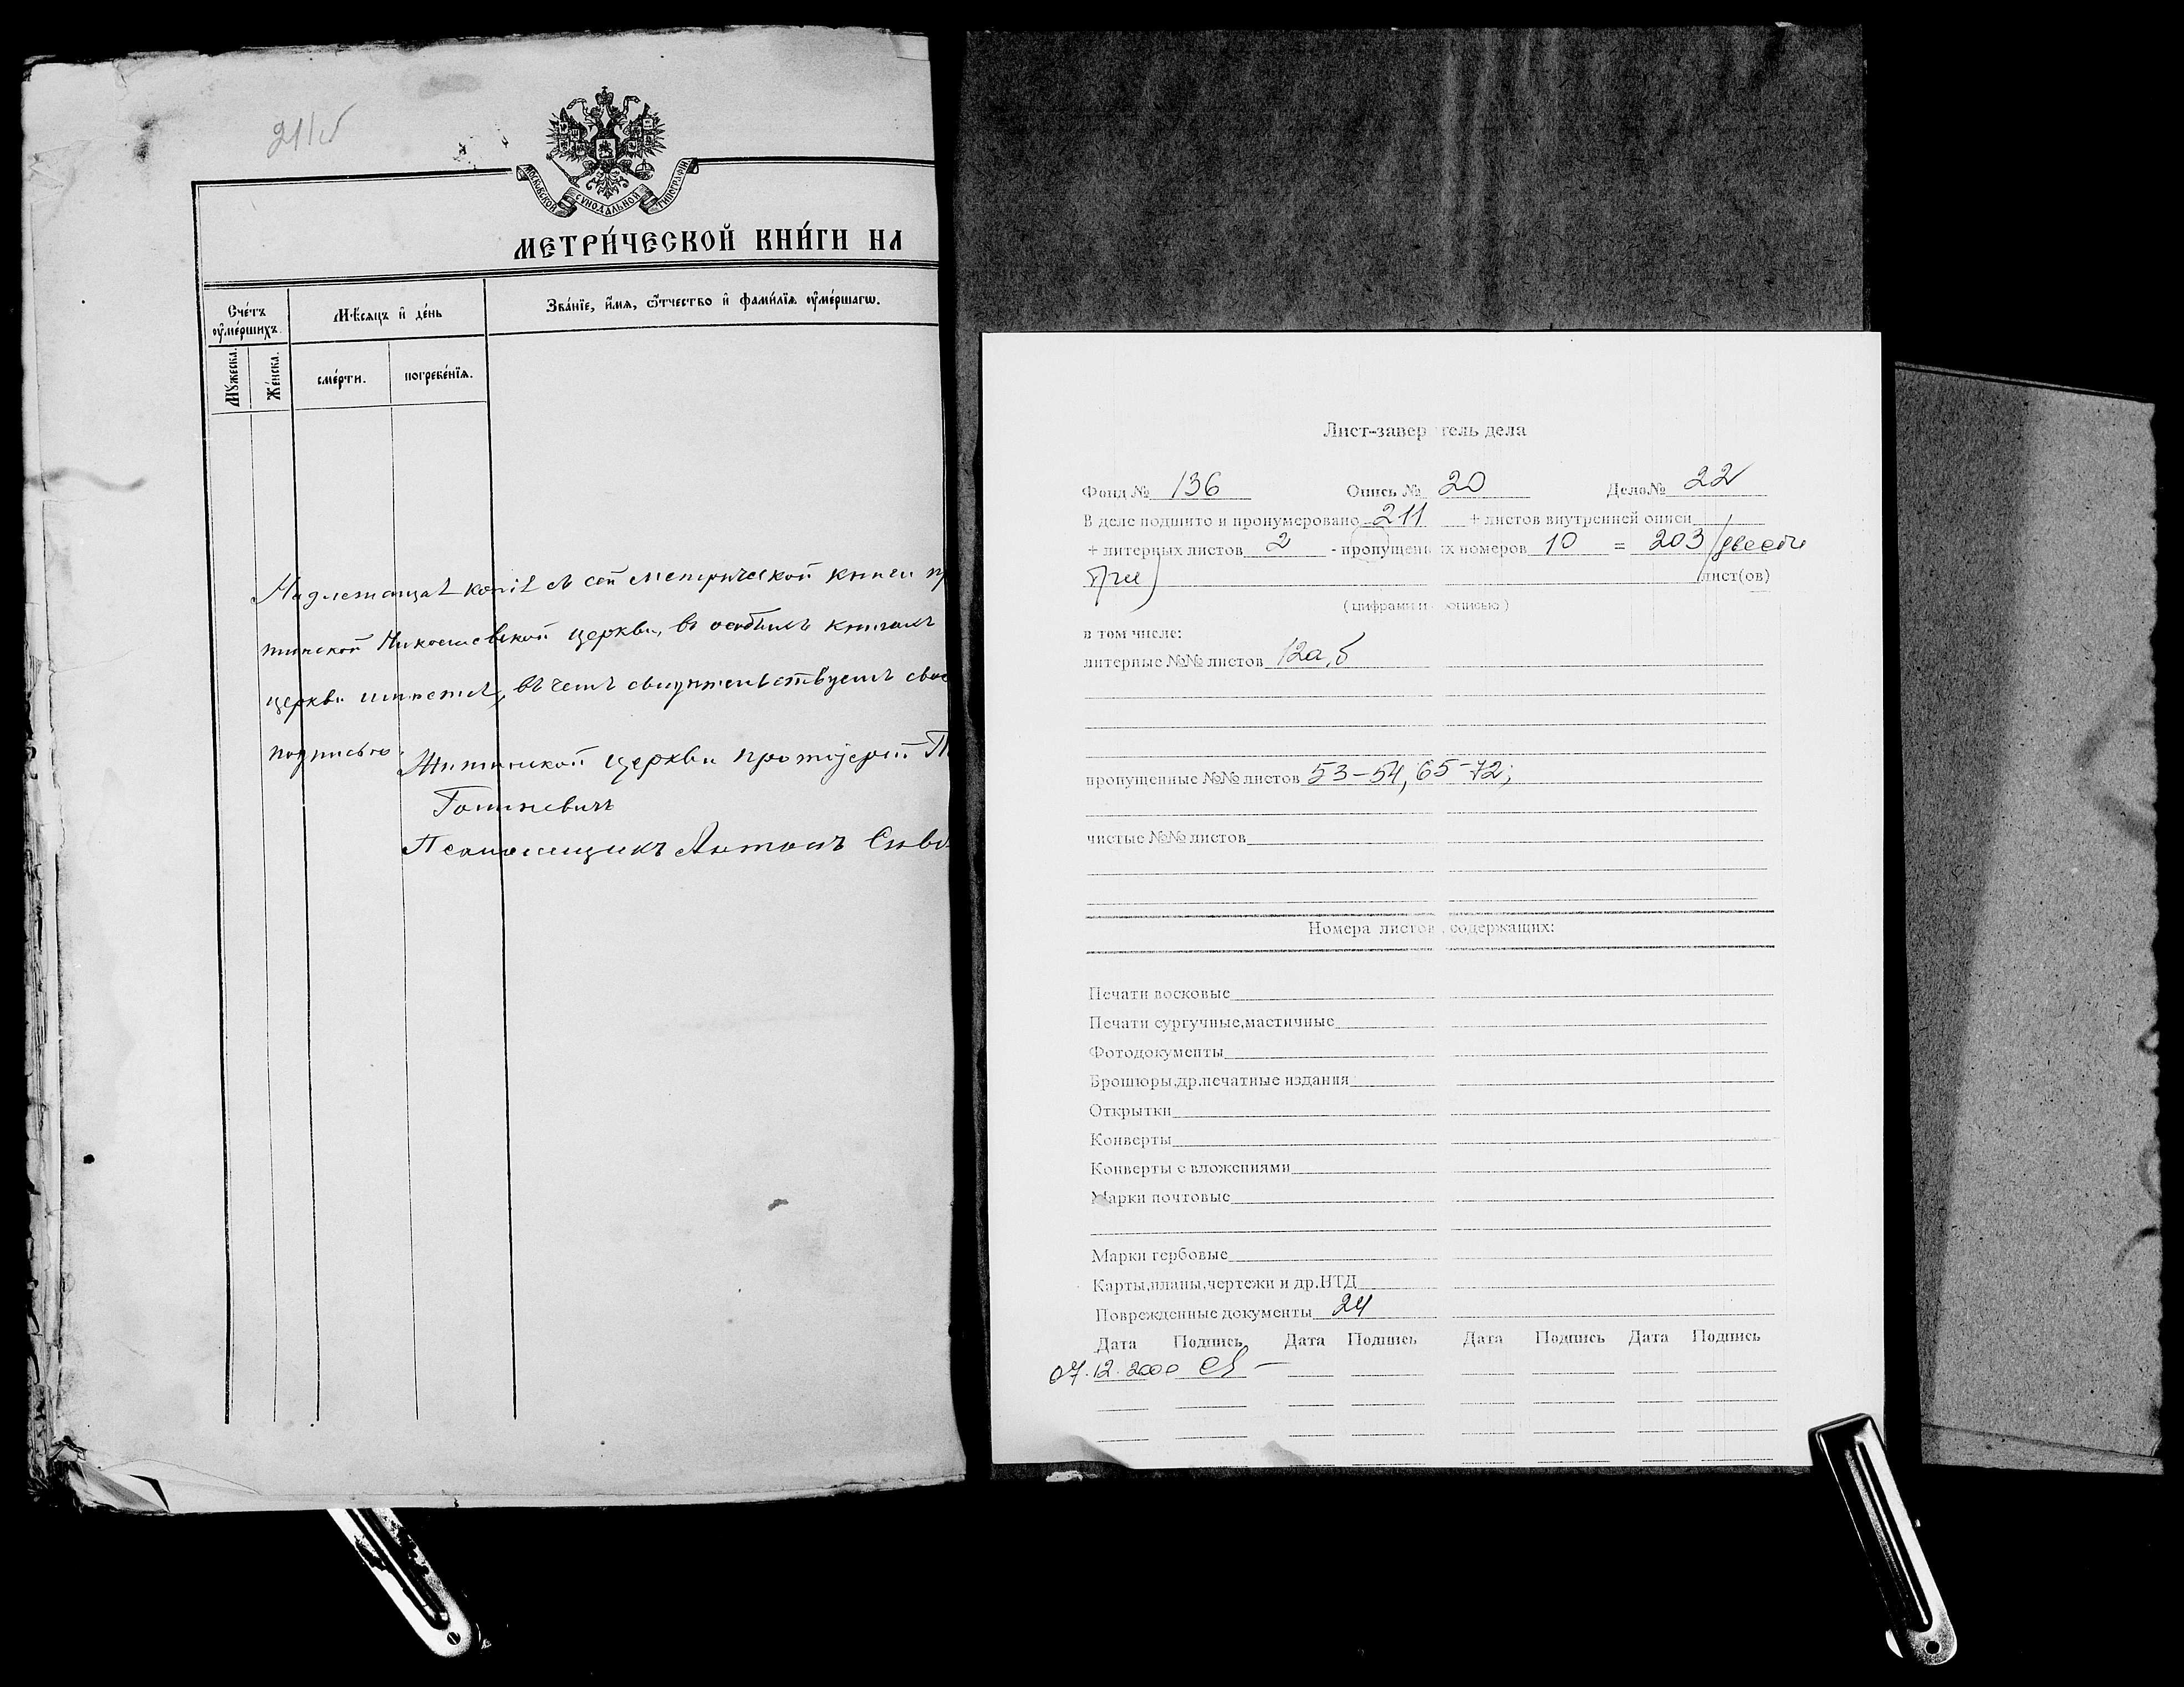 211об
МОСКОВСКОЙ СѴНОДАЛЬНОЙ ТИПОГРАФІИ
МЕТРИ́ЧЕСКОЙ КНИ́ГИ НА
Сче́тъ оумершихъ.
Мѣсяцъ и де́нь
Зва́нїе, и́мя, ѻ҆́тчество и҆ фами́лїя оу҆ме́ршагѡ.
Му́жеска.
Же́нска.
сме́рти.
погребе́нїя.
Надлежащая копія съ сей метрической книги
Николаевской церкви, въ особыхъ книгахъ
церкви имѣется, въ чемъ свидѣтельствуемъ
подписью.
церкви протоіерей
Псаломщикъ Антонъ
Лист-заверитель дела
Фонд № 136 Опись № 20 Дело№ 22
В деле подшито и пронумеровано 211 + листов внутренней описи
+ литерных листов 2 - пропущенных номеров 10 = 203 (двести
три) лист(ов)
( цифрами и прописью )
в том числе:
литерные №№ листов 12а, б
пропущенные №№ листов 53-54, 65-72;
чистые №№ листов
Номера листов , содержащих:
Печати восковые
Печати сургучные,мастичные
Фотодокументы
Брошюры,др.печатные издания
Открытки
Конверты
Конверты с вложениями
Марки почтовые
Марки гербовые
Карты,планы,чертежи и др.НТД
Поврежденные документы 24
Дата Подпись Дата Подпись Дата Подпись Дата Подпись
07.12.2000